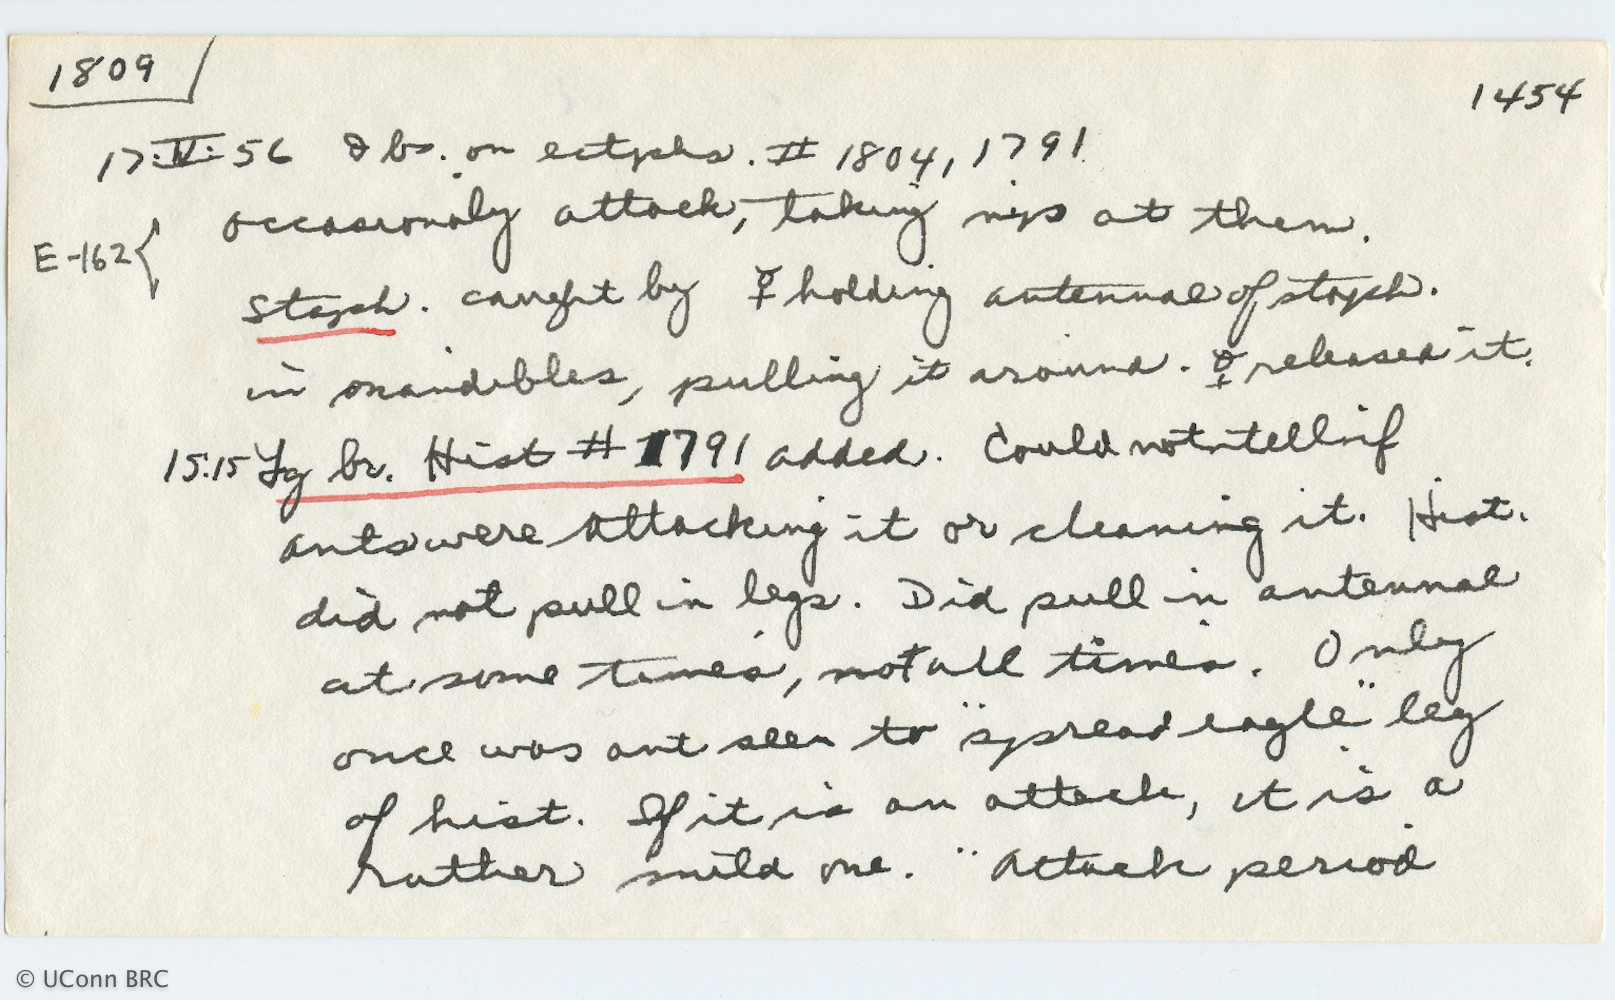 1809
1454
17:IV:56 Obs. on ectophs. # 1804, 1791
E-162 { occasionaly attack, taking nips at them.
Staph. caught by ☿ holding antennae of staph.
in mandibles, pulling it around. ☿ released it.
15:15 Lg br. Hist # 1791 added. Could not tell if
ants were attacking it or cleaning it. Hist.
did not pull in legs. Did pull in antennae
at some times, not all times. Only
once was ant seen to "spread eagle" leg
of hist. If it is an attack, it is a
rather mild one. "Attack period
© UConn BRC